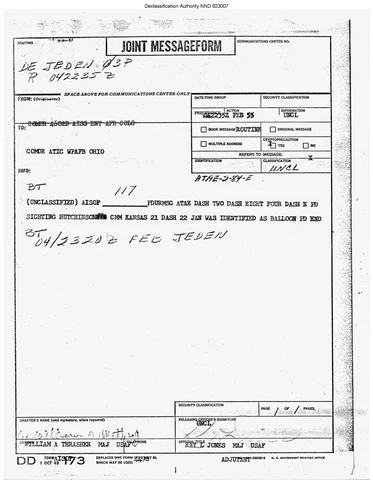 Declassification Authority NND 923007
ROUTING
JOINT MESSAGEFORM
COMMUNICATIONS CENTER NO.
DE JEDEN 03P
R 042235Z
SPACE ABOVE FOR COMMUNICATIONS CENTER ONLY
FROM: (Originator)
DATE-TIME GROUP
SECURITY CLASSIFICATION
PRECEDENCE
ACTION
INFORMATION
042235Z FEB 55
UNCL
COMDR 4602D AISS ENT AFB COLO
TO:
BOOK MESSAGE
ROUTINE
ORIGINAL MESSAGE
CRYPTOPRECAUTION
MULTIPLE ADDRESS
X YES
NO
COMDR ATIC WPAFB OHIO
REFERS TO MESSAGE:
X
IDENTIFICATION
CLASSIFICATION
UNCL
INFO:
ATAE-2-84-E
BT
117
(UNCLASSIFIED) AISOP PDURMSG ATAE DASH TWO DASH EIGHT FOUR DASH E PD
SIGHTING HUTCHINSON CMM KANSAS 21 DASH 22 JAN WAS IDENTIFIED AS BALLOON PD END
BT
04/2320Z FEB JEDEN
SECURITY CLASSIFICATION
PAGE OF PAGES
UNCL
DRAFTER'S NAME (and signature, when required)
RELEASING OFFICER'S SIGNATURE
WILLIAM A THRASHER MAJ USAF
TELEPHONE
OFFICIAL TITLE
RAY L JONES MAJ USAF
ADJUTANT
DD FORM 173
1 OCT 49
REPLACES NME FORM
WHICH MAY BE USED.
U. S. GOVERNMENT PRINTING OFFICE
1